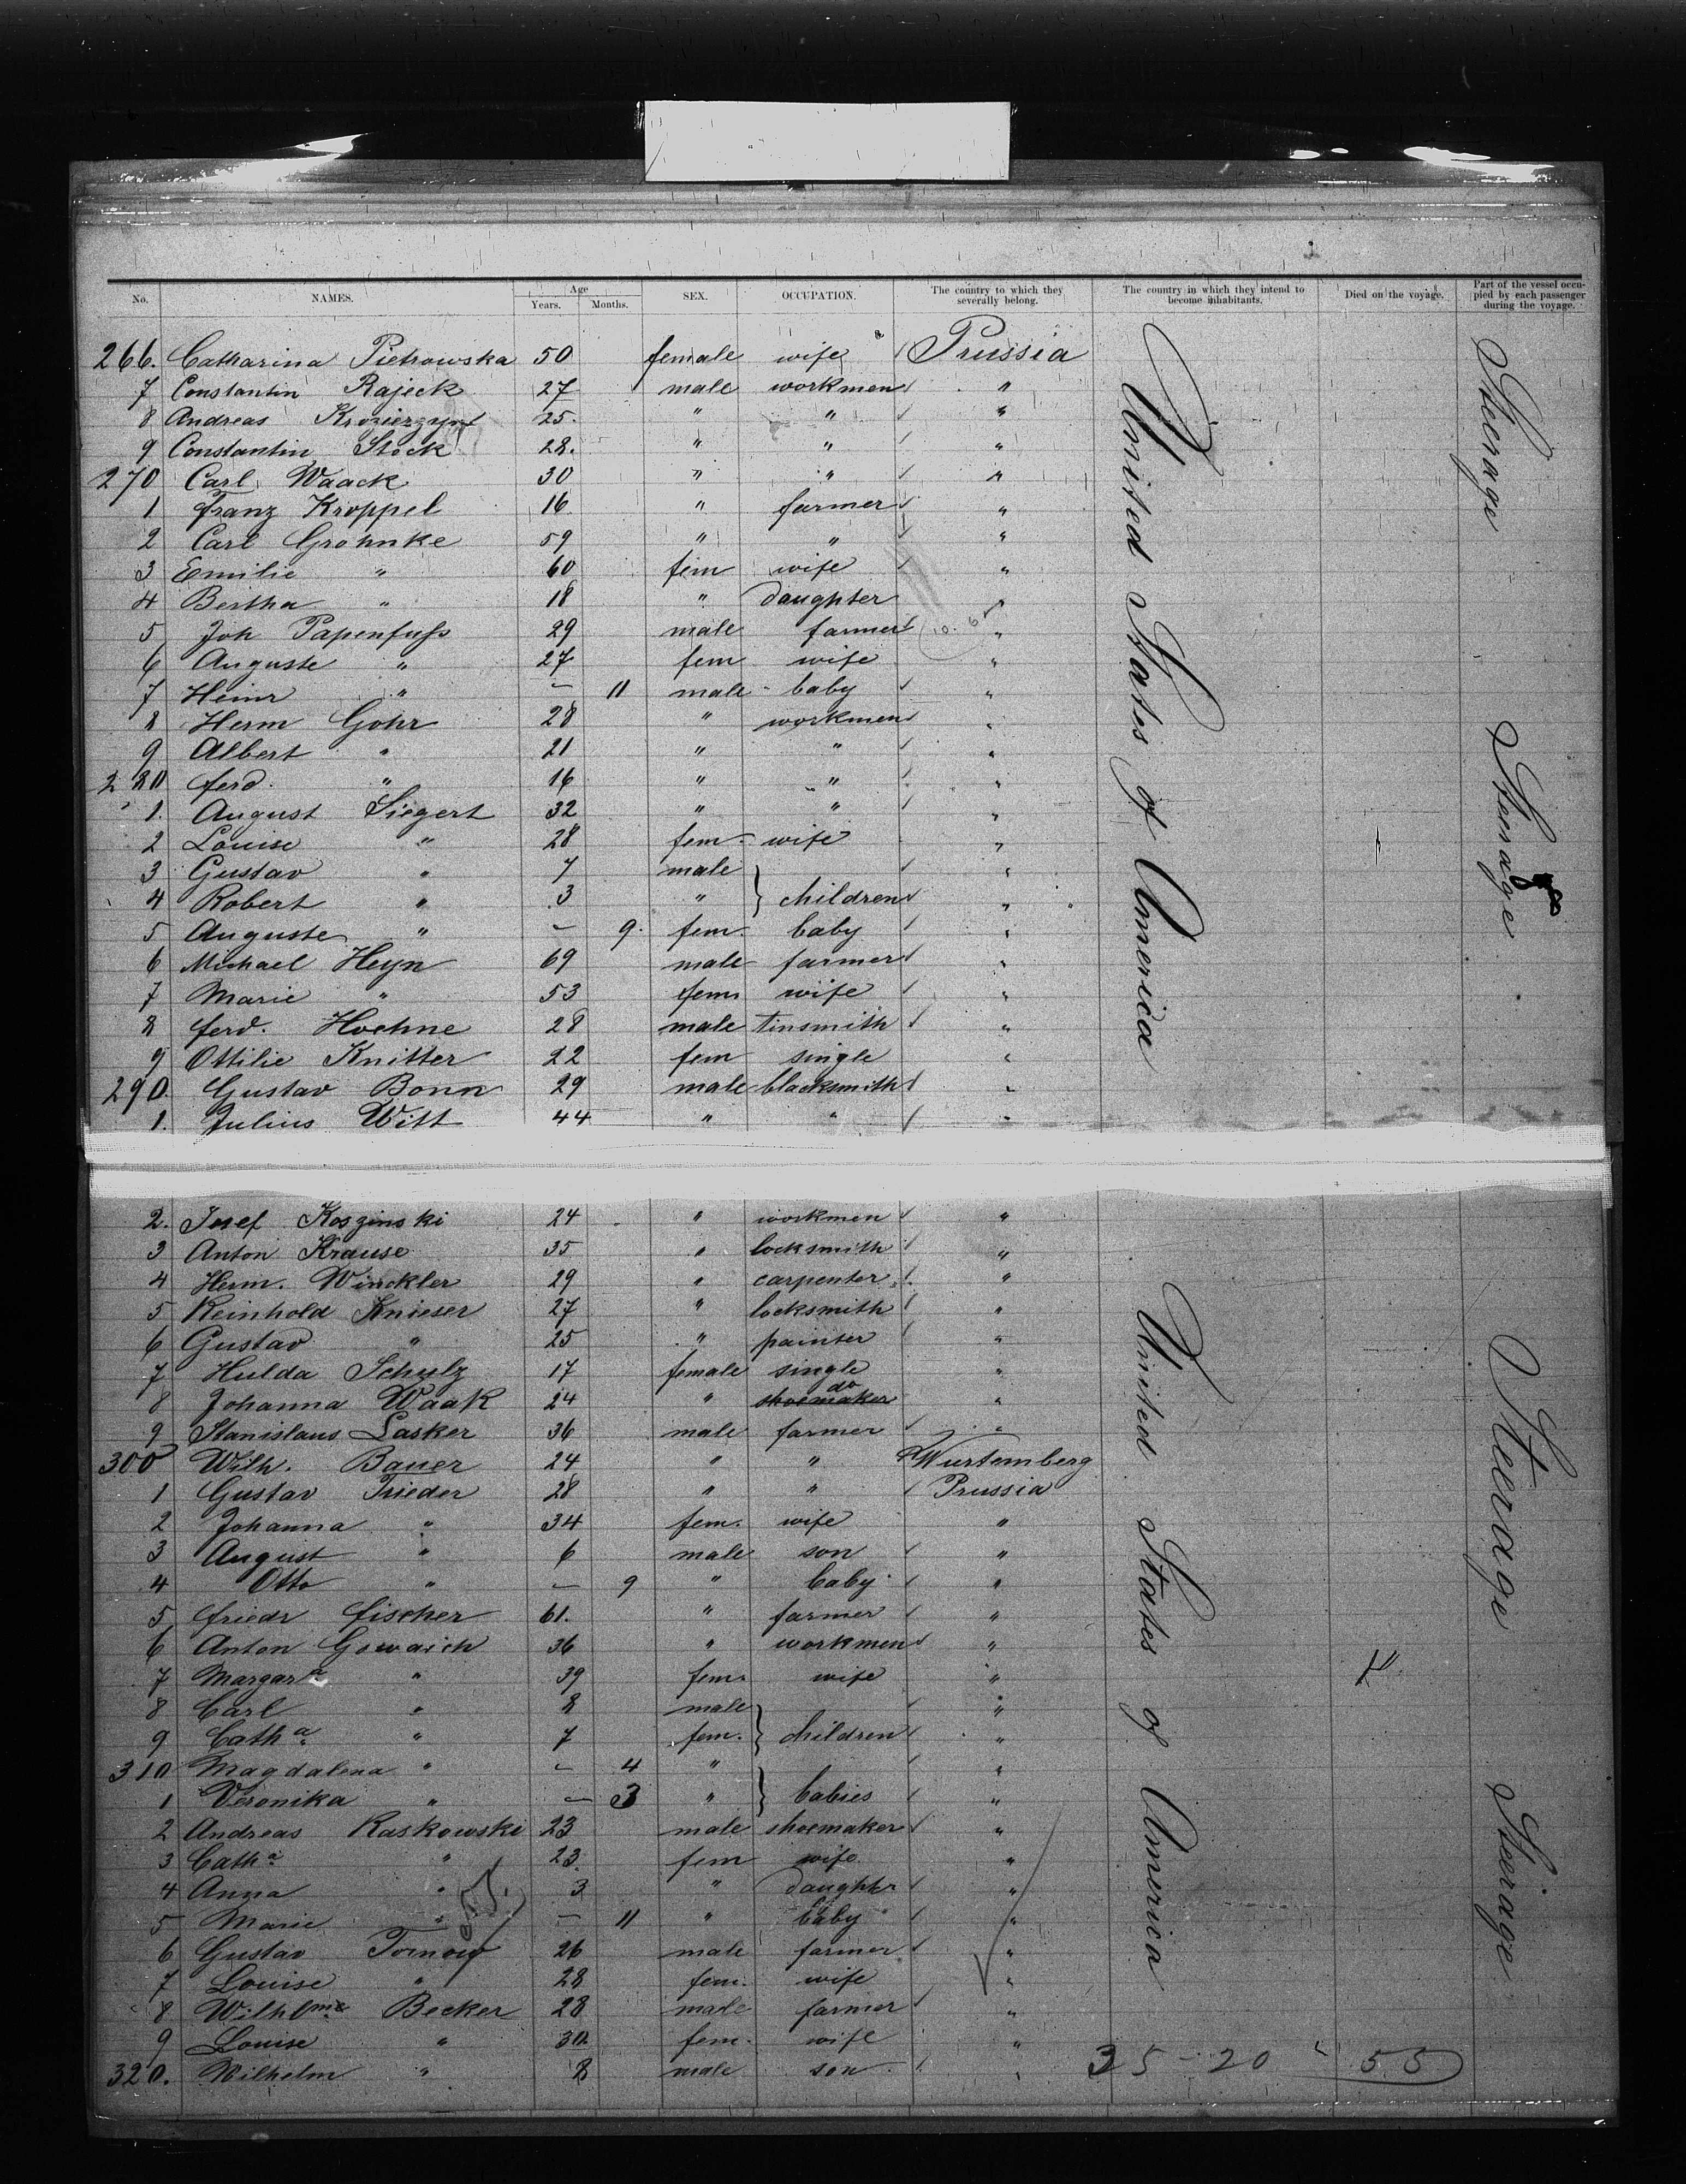 No. NAMES. Age Years. Months. SEX. OCCUPATION. The country to which they severally belong. The country in which they intend to become inhabitants. Died on the voyage. Part of the vessel occupied by each passenger during the voyage.
266. Catharina Pietrowska 50 female wife Prussia
7 Constantin Rajeck 27 male workmen "
8 Andreas 25. " " "
9 Constantin Stock 28. " " "
270 Carl Waack 30 " " "
1 Franz Kroppel 16 " farmer "
2 Carl Grohnke 59 " " "
3 Emilie " 60 fem wife "
4 Bertha " 18 " daughter "
5 Joh Papenfuss 29 male farmer "
6 Auguste " 27 fem wife "
7 Heinr " – 11 male baby "
8 Herm Gohr 28 " workmen "
9 Albert " 21 " " "
280 ferd. " 16 " " "
1. August Siegert 32 " " "
2 Louise " 28 fem wife "
3 Gustav " 7 male "
4 Robert " 3 " } children "
5 Auguste " – 9. fem. baby "
6 Michael Heyn 69 male farmer "
7 Marie " 53 fem wife "
8 ferd. Hoehne 28 male tinsmith "
9 Ottilie Knitter 22 fem single "
290. Gustav Bonn 29 male blacksmith "
1. Julius Witt 44 " " "
United States of America
Steerage
Steerage
2. Josef Koszinski 24 " workmen "
3 Anton Krause 35 " locksmith "
4 Herm. Winckler 29 " carpenter "
5 Reinhold Knieser 27 " locksmith "
6 Gustav " 25 " painter "
7 Hulda Schulz 17 female single "
8 Johanna Waak 24 " shoemaker do "
9 Stanislaus Lasker 36 male farmer "
300 Wilh. Bauer 24 " " Wurtemberg
1 Gustav Trieder 28 " " Prussia
2 Johanna " 34 fem. wife "
3 August " 6 male son "
4 Otto " – 9 " baby "
5 friedr fischer 61. " farmer "
6 Anton Gowaich 36 " workmen "
7 Margar " 39 fem. wife "
8 Carl " 8 male "
9 Catha " 7 fem. } children "
310 Magdalena " – 4 " "
1 Veronika " – 3 " } babies "
2 Andreas Raskowski 23 male shoemaker "
3 Catha " 23 fem wife "
4 Anna " 3 " daughter "
5 Marie " – 11 " baby "
6 Gustav Tornow 26 male farmer "
7 Louise " 28 fem. wife "
8 Wilhlme Becker 28 male farmer "
9 Louise " 30 fem. wife "
320. Wilhelm " 8 male son "
United States of America
Steerage
Steerage
35 - 20 55